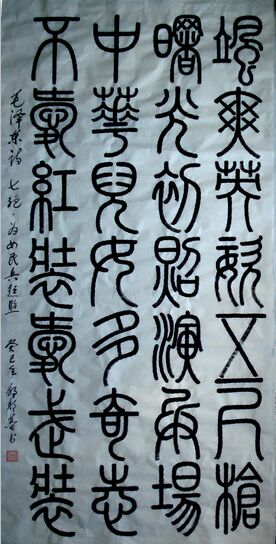 颯爽英姿五尺槍
曙光初照演兵場
中華兒女多奇志
不愛紅裝愛武裝
毛泽东诗 七绝·为女民兵题照 癸巳冬 书